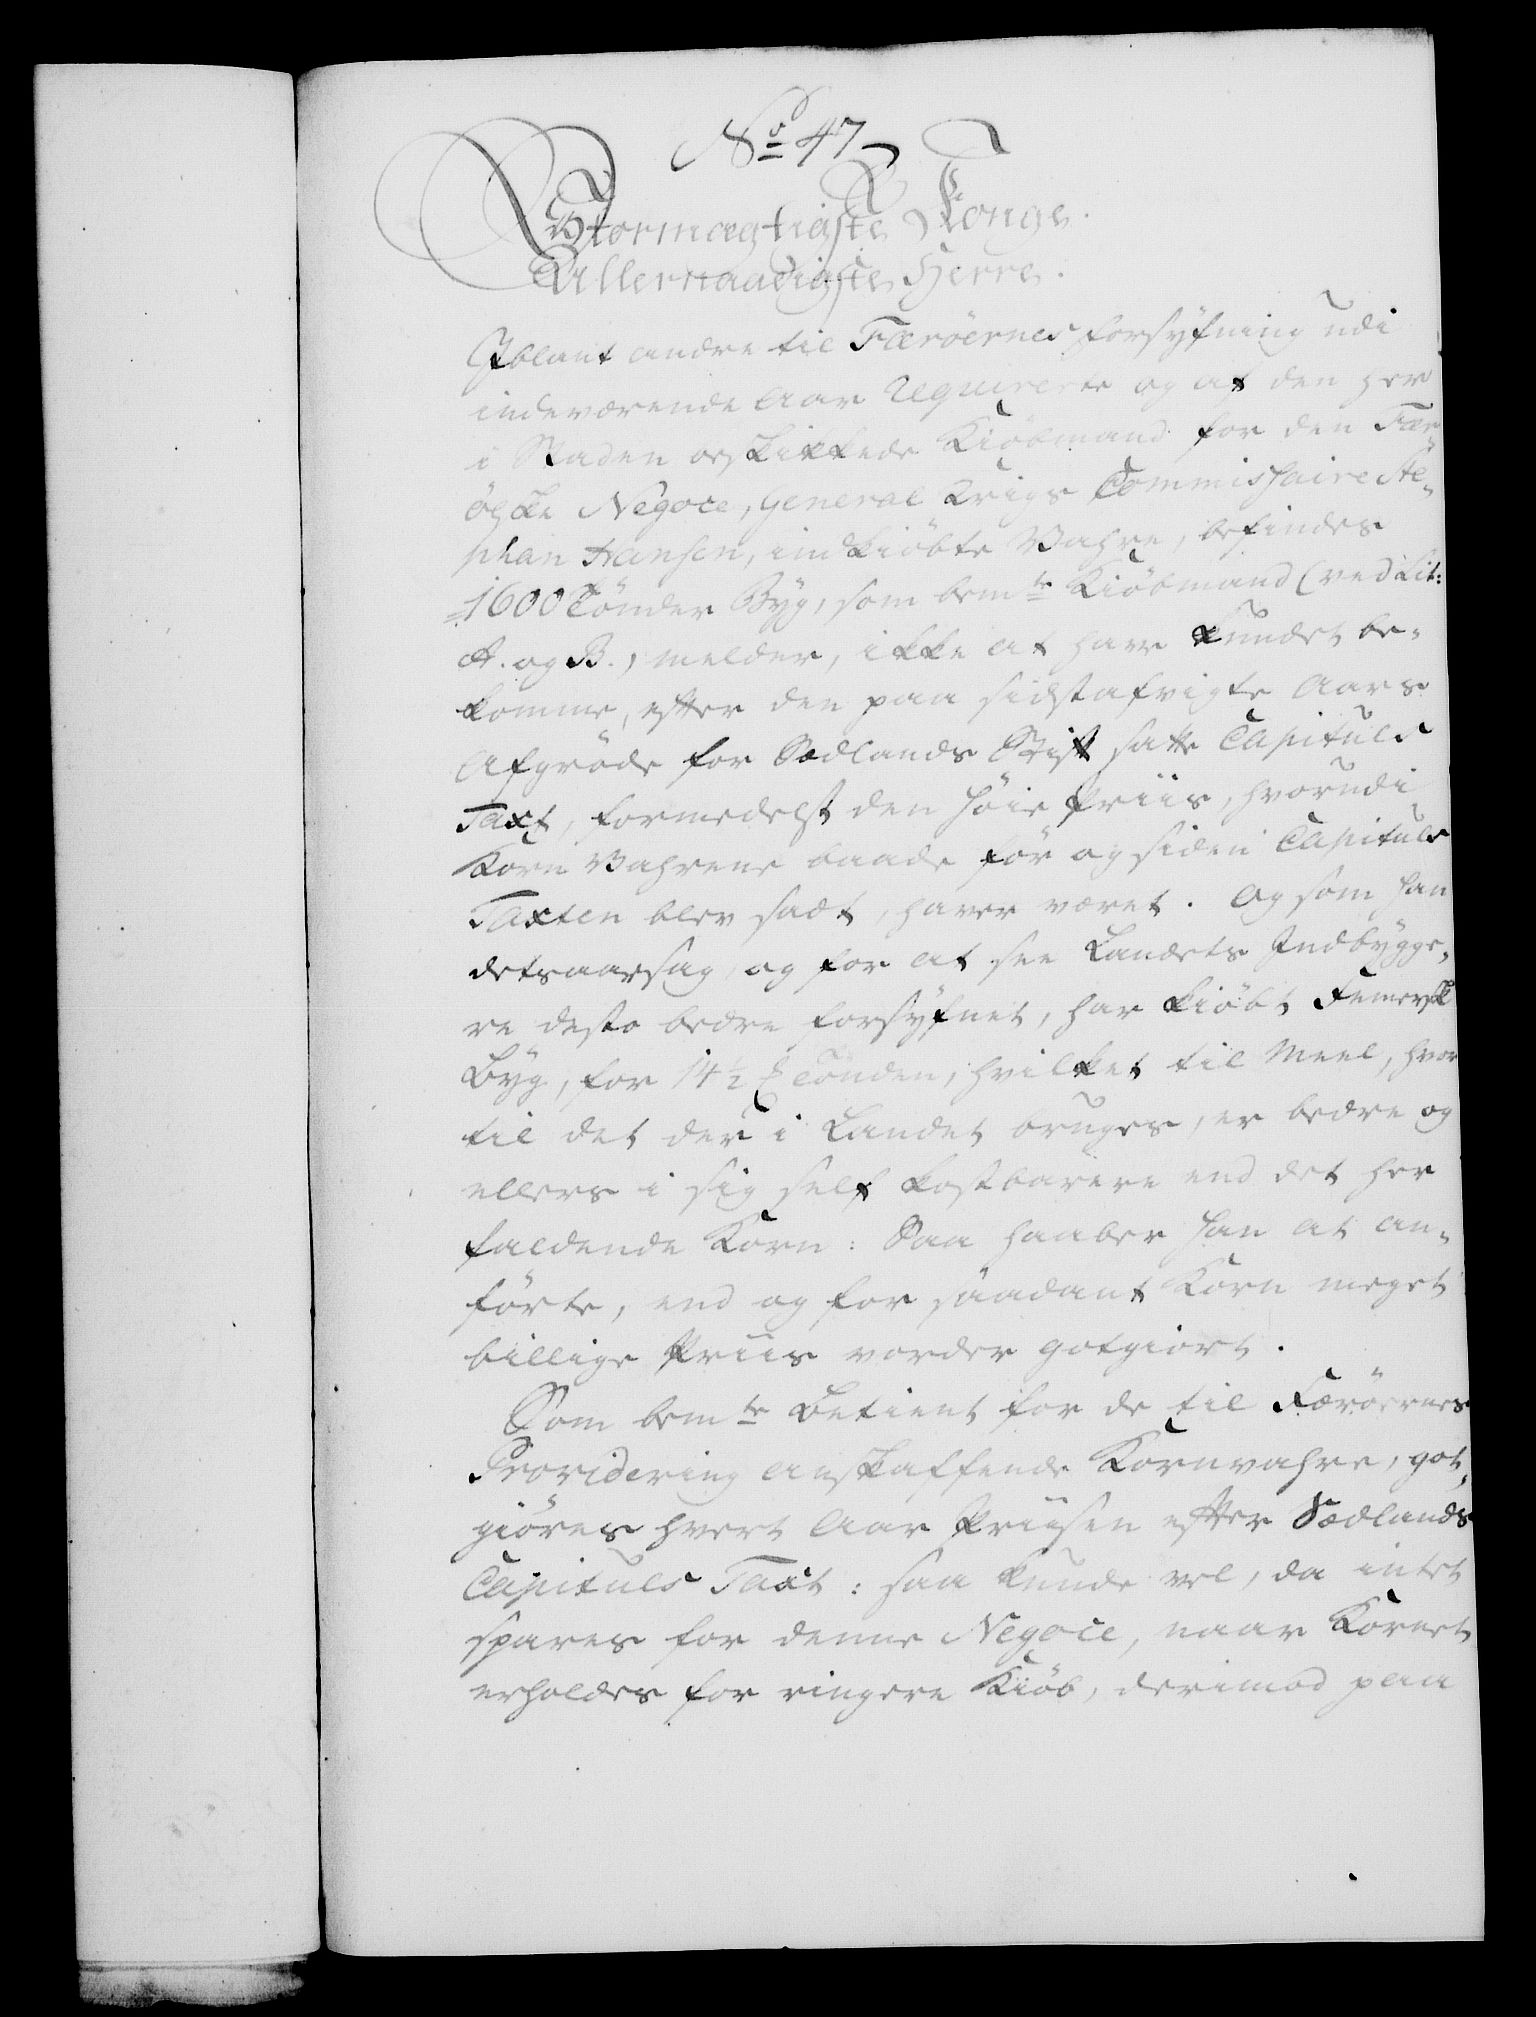 No 47
Stormægtigste Konge.
Allernaadigste Herre.
Iblant andre til Færöernes forsyfning udi
indeværende Aar Requirerte og af den her
i Staden beskikkede Kiöbmand for den Fær
öeske Negoce, General Krigs Commissaire Ste-
phan Hansen, indkiöbte Vahre, befindes
1600 Tönder Byg, som bemte Kiöbmand (ved Lit:
A. og B.) melder, ikke at have kundet be-
komme, efter den paa sidstafvigte Aars
Afgröde for Sædlands Stift satte Capituls
Taxt, formedelst den höie Priis, hvorudi
Korn Vahrene baade för og siden Capituls
Taxten blev sadt, haver været. Og som han
detsaarsag, og for at see Landets Indbygge-
re desto bedre forsyfnet, har kiöbt Femersk
Byg, for 14½ ß Tönden, hvilket til Meel, hvor
til det der i Landet bruges, er bedre og
ellers i sig self kostbarere end det her
faldende Korn: Saa haaber han at an-
förte, end og for saadant Korn meget
billige Priis vorder gotgiort.
Som bemte Betient for de til Færöernes
Providering anskaffende Kornvahre, got-
giöres hvert Aar Priisen efter Sædlands
Capituls Taxt: saa kunde vel, da intet
spares for denne Negoce, naar Kornet
erholdes for ringere Kiöb, derimod paa